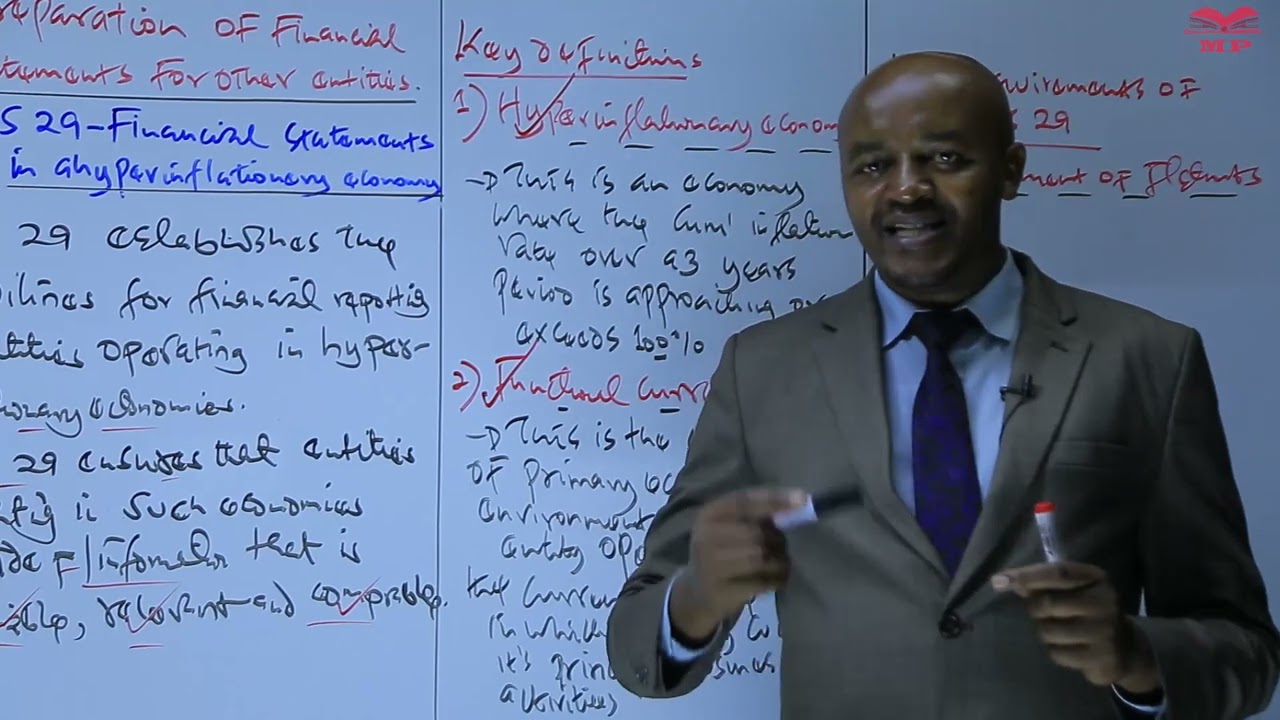 eparation OF Financial
tements For other entities.
S 29-Financial Statements
in a hyperinflationary economy
29 establishes the
ilines for financial reporting
tities operating in hyper-
onary economies.
29 ensures that entities
in such economies
F/information that is
ible, relevant and comparable.
Key definitions
1) Hyperinflationary econom
→ This is an economy
where the cum' inflation
rate over a 3 years
period is approaching or
exceeds 100%
2) Functional curr
→ This is the
of primary ec
environment
entity ope
the curren
in which
it's prin
activities
uirements OF
29
ment OF Elements
MP